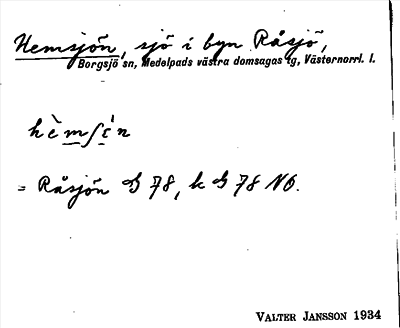 Hemsjön, sjö i byn Råsjö,
Borgsjö sn, Medelpads västra domsagas tg, Västernorrl. l.
hèmʃɛ́n
= Råsjön G 78, k G 78 NO.
VALTER JANSSON 1934